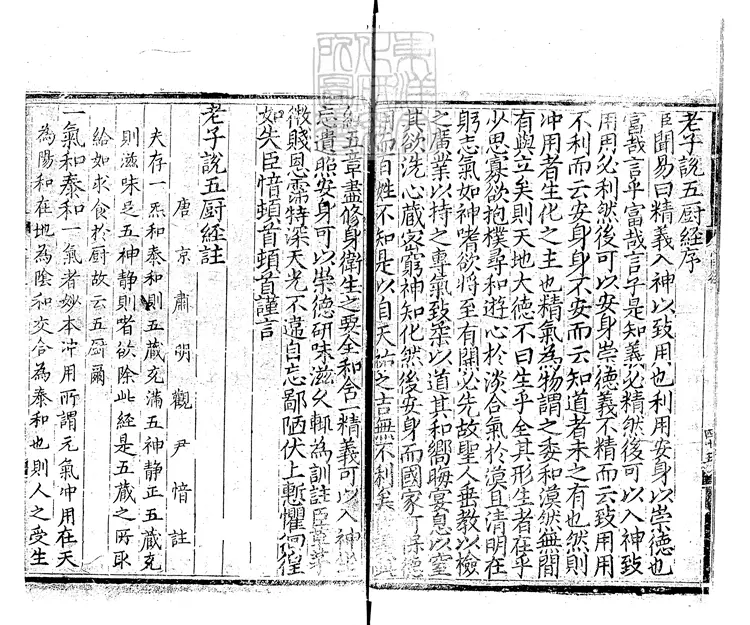 老子說五厨經序
臣聞易曰精義入神以致用也利用安身以崇德也
富哉言乎富哉言乎是知義必精然後可以入神致
用用必利然後可以安身崇德義不精而云致用用
不利而云安身身不安而云知道者未之有也然則
冲用者生化之主也精氣為物謂之委和漠然無間
有與立矣則天地大德不曰生乎全其形生者在乎
少思寡欲抱樸尋和遊心於淡合氣於漠自清明在
躬志氣如神嗜欲將至有開必先故聖人垂教以檢
之廣業以持之專氣致柔以道其和嚮晦宴息以窒
其欲洗心藏密窮神知化然後安身而國家可保德
用而百姓不知是以自天祐之吉無不利矣
五章盡修身衛生之要全和含一精義可以入神坐
忘遺照安身可以崇德研味滋久輒為訓註臣草茅
微賤恩霈特深天光不違自忘鄙陋伏上慙懼徊徨
如失臣愔頓首頓首謹言
老子說五厨經註
唐京肅明觀尹愔註
夫存一炁和泰和則五藏充滿五神静正五藏充
則滋味足五神静則嗜欲除此經是五藏之所取
給如求食於厨故云五厨爾
一氣和泰和一氣者妙本冲用所謂元氣冲用在天
為陽和在地為陰和交合為泰和也則人之受生